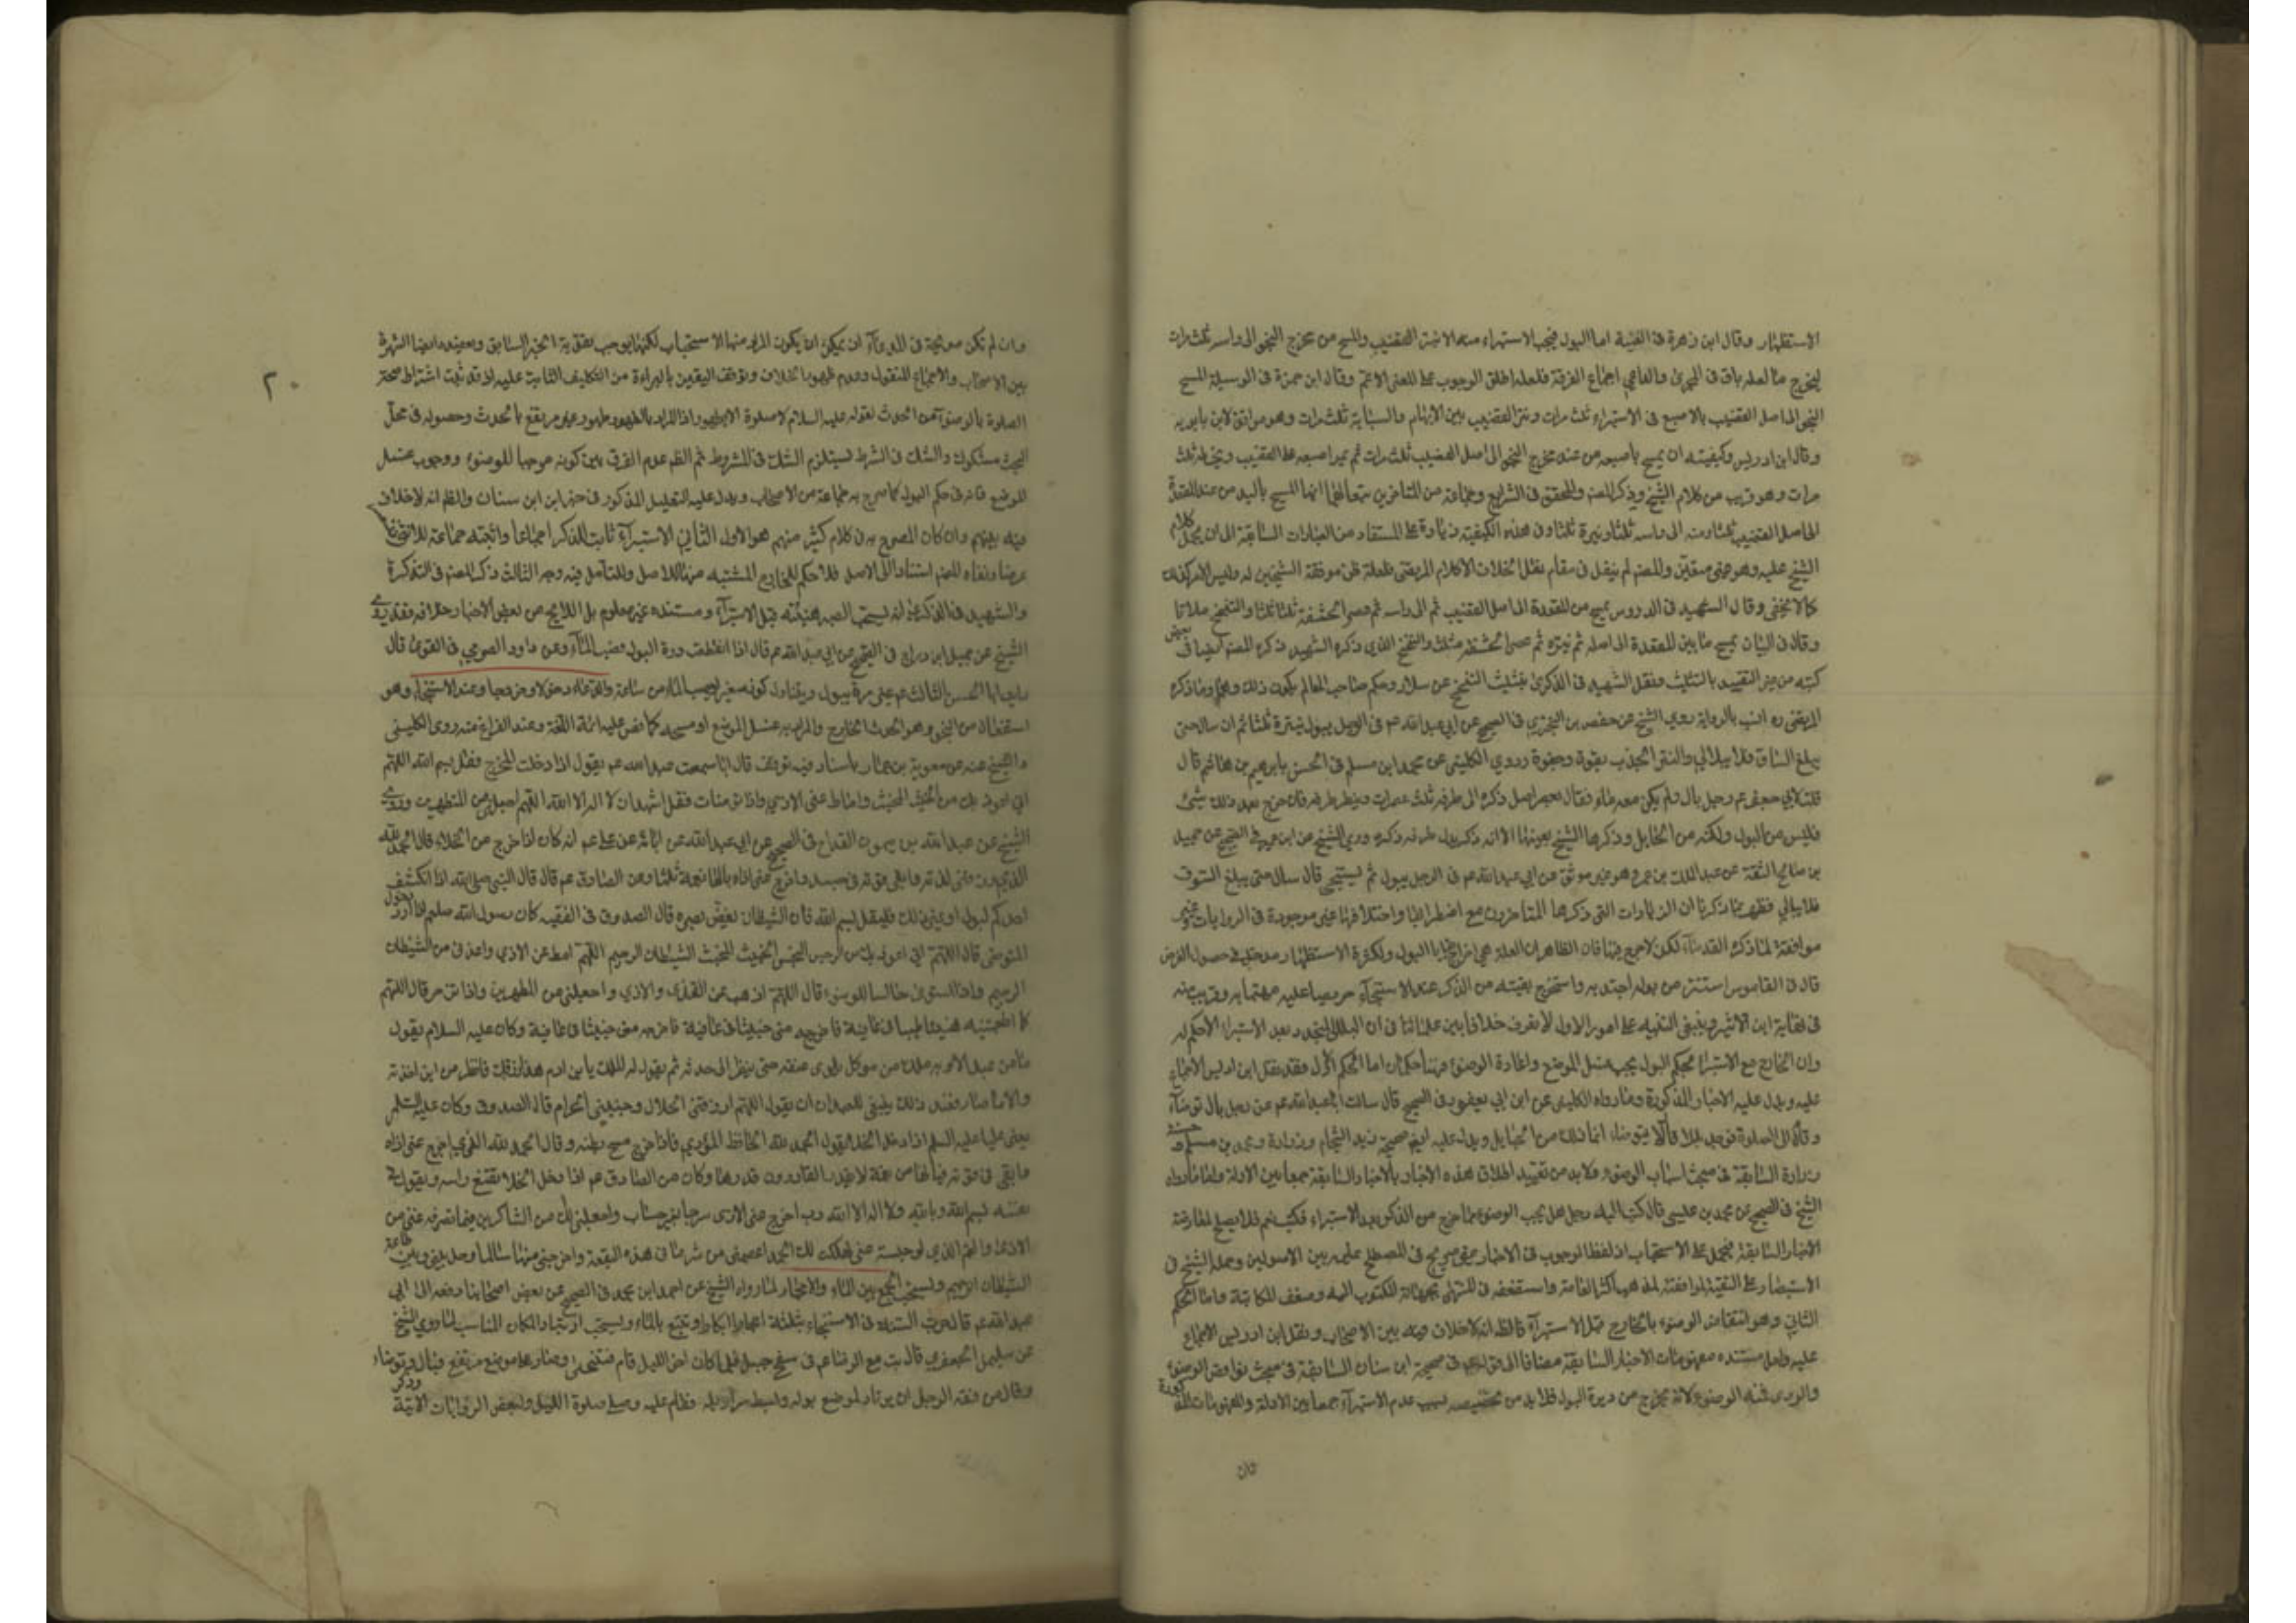 الاستظهار وقال ابن زهرة في الغنية اما البول فيجب الاستبراء منه اولا بنتر القضيب والمسح من مخرج النجو الى راسه ثلث مرات
ليخرج ما لعله باق في المجرى اجماع الفرقة فلعله اطلق الوجوب على المعنى الاعم وقال ابن حمزة في الوسيلة المسح
النجو الى اصل القضيب بالاصبع في الاستبراء ثلث مرات ونتر القضيب بين الابهام والسبابة ثلث مرات وهو موافق لابن بابويه
وقال ابن ادريس وكيفيته ان يمسح باصبعه من عند مخرج النجو الى اصل القضيب ثلث مرات ثم يمر اصبعه على القضيب ويخرطه ثلث
مرات وهو قريب من كلام الشيخ وذكر المصنف والمحقق في الشرايع وجماعة من المتاخرين المسح باليد من عند المقعدة
الى اصل القضيب ثلثا ومنه الى راسه ثلثا وينتره ثلثا وفي هذه الكيفية زيادة على المستفاد من العبارات السابقة الا ان يحمل كلام
الشيخ عليه والمصنف لم ينقل في مقام نقل الخلاف الا كلام المرتضى فلعله ظن موافقة الشيخين له وليس الامر كذلك
كما لا يخفى وقال الشهيد في الدروس يمسح من المقعدة الى اصل القضيب ثم الى راسه ثم عصر الحشفة ثلثا ثلثا والتنحنح ثلاثا
وقال في البيان يمسح ما بين المقعدة الى اصله ثم ينتره ثم عصر الحشفة مثلث والتنحنح الذي ذكره الشهيد ذكره المصنف ايضا في بعض
كتبه من غير التقييد بالتثليث ونقل الشهيد في الذكرى تثليث التنحنح عن سلار وما ذكره
المرتضى ره انسب بالرواية روى الشيخ عن حفص بن البختري في الصحيح عن ابي عبد الله عم في الرجل يبول ينتره ثلثا ثم ان سال حتى
يبلغ الساق فلا يبالي والنتر الجذب بقوة وجفوة وروى الكليني عن محمد ابن مسلم في الحسن بابرهيم بن هاشم قال
قلت لابي جعفر عم رجل بال ولم يكن معه ماء فقال يعصر اصل ذكره الى طرفه ثلث عصرات وينتر طرفه فان خرج بعد ذلك شئ
فليس من البول ولكنه من الحبايل وذكرها الشيخ بعينها الا انه ذكر بدل طرفه ذكره وروى الشيخ عن ابن ابي عمير في الصحيح عن جميل
بن صالح الثقة عن عبد الملك بن عمرو وهو غير موثق عن ابي عبد الله عم في الرجل يبول ثم يستنجي قال سال حتى يبلغ السوق
فلا يبالي فظهر بما ذكرنا ان الزيادات التي ذكرها المتاخرون مع اضطرابها واختلافها غير موجودة في الروايات وغير
موافقة لما ذكره القدماء لكن لا حرج فيها فان الظاهر ان العلة هي اخراج بقايا البول ولكثرة الاستظهار مدخل في حصول الغرض
قال في القاموس استنتر من بوله اجتذبه واستخرج بقيته من الذكر عند الاستنجاء حريصا عليه مهتما به وقريب منه
في نهاية ابن الاثير وينبغي التنبيه على امور الاول لا نعرف خلافا بين علمائنا في ان البلل المتجدد بعد الاستبراء لا حكم له
وان الخارج مع الاستبراء بحكم البول يجب غسل الموضع واعادة الوضوء فهنا حكمان اما الحكم الاول فقد نقل ابن ادريس الاجماع
عليه ويدل عليه الاخبار المذكورة وما رواه الكليني عن ابن ابي يعفور في الصحيح قال سالت ابا عبد الله عم عن رجل بال ثم توضا
وقام الى الصلوة فوجد بللا قال لا يتوضا انما ذلك من الحبايل ويدل عليه ايضا صحيحة زيد الشحام وزرارة ومحمد بن مسلم و حسنة
زرارة السابقة في مبحث اسباب الوضوء فلا بد من تقييد اطلاق هذه الاخبار بالاخبار السابقة جمعا بين الادلة واما ما رواه
الشيخ في الصحيح عن محمد بن عيسى قال كتب اليه رجل هل يجب الوضوء مما خرج من الذكر بعد الاستبراء فكتب نعم فلا يصلح لمعارضة
الاخبار السابقة فيحمل على الاستحباب اذ لفظ الوجوب في الاخبار غير صريح في المصطلح عليه بين الاصوليين وحمله الشيخ في
الاستبصار على التقية لموافقته لمذهب اكثر العامة واستضعفه في المنتهى بجهالة المكتوب اليه وضعف المكاتبة واما الحكم
الثاني وهو انتقاض الوضوء بالخارج قبل الاستبراء فالظ انه لا خلاف فيه بين الاصحاب ونقل ابن ادريس الاجماع
عليه ولعل مستنده مفهومات الاخبار السابقة مضافا الى قوله عم في صحيحة ابن سنان السابقة في مبحث نواقض الوضوء
والودي فمنه الوضوء لانه يخرج من دريرة البول فلا بد من تخصيصه بسبب عدم الاستبراء جمعا بين الادلة والمفهومات المذكورة
وان
٢٠
وان لم تكن صريحة في المدعى اذ يمكن ان يكون المراد منها الاستحباب لكنها يوجب تقوية الخبر السابق ويعضده ايضا الشهرة
بين الاصحاب والاجماع المنقول وعدم ظهور الخلاف وتوقف اليقين بالبراءة من التكليف الثابت عليه اذ قد ثبت اشتراط صحة
الصلوة بالوضوء من الحدث لقوله عليه السلام لا صلوة الا بطهور
البحث مشكوك والشك في الشرط يستلزم الشك في المشروط ثم الظ عدم الفرق بين كونه موجبا للوضوء ووجوب غسل
الموضع فانه في حكم البول كما صرح به جماعة من الاصحاب ويدل عليه التعليل المذكور في خبر ابن سنان والظ انه لا خلاف
فيه بينهم وان كان المصرح به في كلام كثير منهم هو الاول الثاني الاستبراء ثابت للذكر اجماعا واثبته جماعة للانثى
عرضا ونفاه المصنف استنادا الى الاصل فلا حكم للخارج المشتبه منها للاصل وللتامل فيه وجه الثالث ذكر المصنف في التذكرة
والشهيد في الذكرى انه يستحب الصبر هنيئة قبل الاستبراء ومستنده غير معلوم بل اللايح من بعض الاخبار خلافه فقد روى
الشيخ عن جميل ابن دراج في الصحيح عن ابي عبد الله عم قال اذا انقطعت درة البول فصب الماء وعن داود الصرمي في القوي قال
رايت ابا الحسن الثالث عم غير مرة يبول ويتناول كوزا صغيرا ويصب الماء من ساعته والدعاء دخولا وخروجا وعند الاستنجاء وهو
استفعال من النجو وهو الحدث الخارج والمراد به غسل الموضع او مسحه كما نص عليه ائمة اللغة وعند الفراغ منه روى الكليني
والشيخ عنه عن معوية بن عمار باسناد فيه توقف قال سمعت ابا عبد الله عم يقول اذا دخلت المخرج فقل بسم الله اللهم
اني اعوذ بك من الخبيث المخبث واماط عني الاذى واذا توضات فقل اشهد ان لا اله الا الله اللهم اجعلني من المتطهرين وروى
الشيخ عن عبد الله بن ميمون القداح في الصحيح عن ابي عبد الله عن ابائه عن علي عم انه كان اذا خرج من الخلاء قال الحمد لله
الذي رزقني لذته وابقى قوته في جسدي واخرج عني اذاه يا لها نعمة ثلثا وعن الصادق عم قال قال النبي صلى الله اذا انكشف
احدكم لبول او غير ذلك فليقل بسم الله فان الشيطان يغض بصره قال الصدوق في الفقيه كان رسول الله صلعم اذا اراد دخول
المتوضى قال اللهم اني اعوذ بك من الرجس النجس الخبيث المخبث الشيطان الرجيم اللهم امط عني الاذى واعذني من الشيطان
الرجيم واذا استوى جالسا للوضوء قال اللهم اذهب عني القذى والاذى واجعلني من المتطهرين واذا تزحر قال اللهم
كما اطعمتنيه طيبا في عافية فاخرجه مني خبيثا في عافية وكان عليه السلام يقول
ما من عبد الا وبه ملك موكل يلوي عنقه حتى ينظر الى حدثه ثم يقول له الملك يا ابن ادم هذا رزقك فانظر من اين اخذته
والى ما صار فعند ذلك ينبغي للعبد ان يقول اللهم ارزقني الحلال وجنبني الحرام قال الصدوق وكان عليه السلام
يعني عليا عليه السلم اذا دخل الخلاء يقول الحمد لله الحافظ المؤدي فاذا خرج مسح بطنه وقال الحمد لله الذي اخرج عني اذاه
وابقى في قوته فيا لها من نعمة لا يقدر القادرون قدرها وكان الصادق عم اذا دخل الخلاء يقنع راسه ويقول في
نفسه بسم الله وبالله ولا اله الا الله رب اخرج عني الاذى سرحا بغير حساب واجعلني لك من الشاكرين فيما تصرفه عني من
الاذى والغم الذي لو حبسته عني هلكت لك الحمد اعصمني من شر ما في هذه البقعة واخرجني منها سالما وحل بيني وبين طاعة
الشيطان الرجيم ويستحب الجمع بين الماء والاحجار لما رواه الشيخ عن احمد ابن محمد في الصحيح عن بعض اصحابنا رفعه الى ابي
عبد الله عم قال جرت السنة في الاستنجاء بثلثة احجار ابكار ويتبع بالماء ويستحب ارتياد المكان المناسب لما روى الشيخ
عن سليمان الجعفري قال بت مع الرضا عم في سفح جبل فلما كان اخر الليل قام فتنحى وصار على موضع مرتفع فبال وتوضا
وقال من فقه الرجل ان يرتاد لموضع بوله وبسط سراويله وقام عليه وصلى صلوة الليل ولبعض الروايات الاتية وذكر